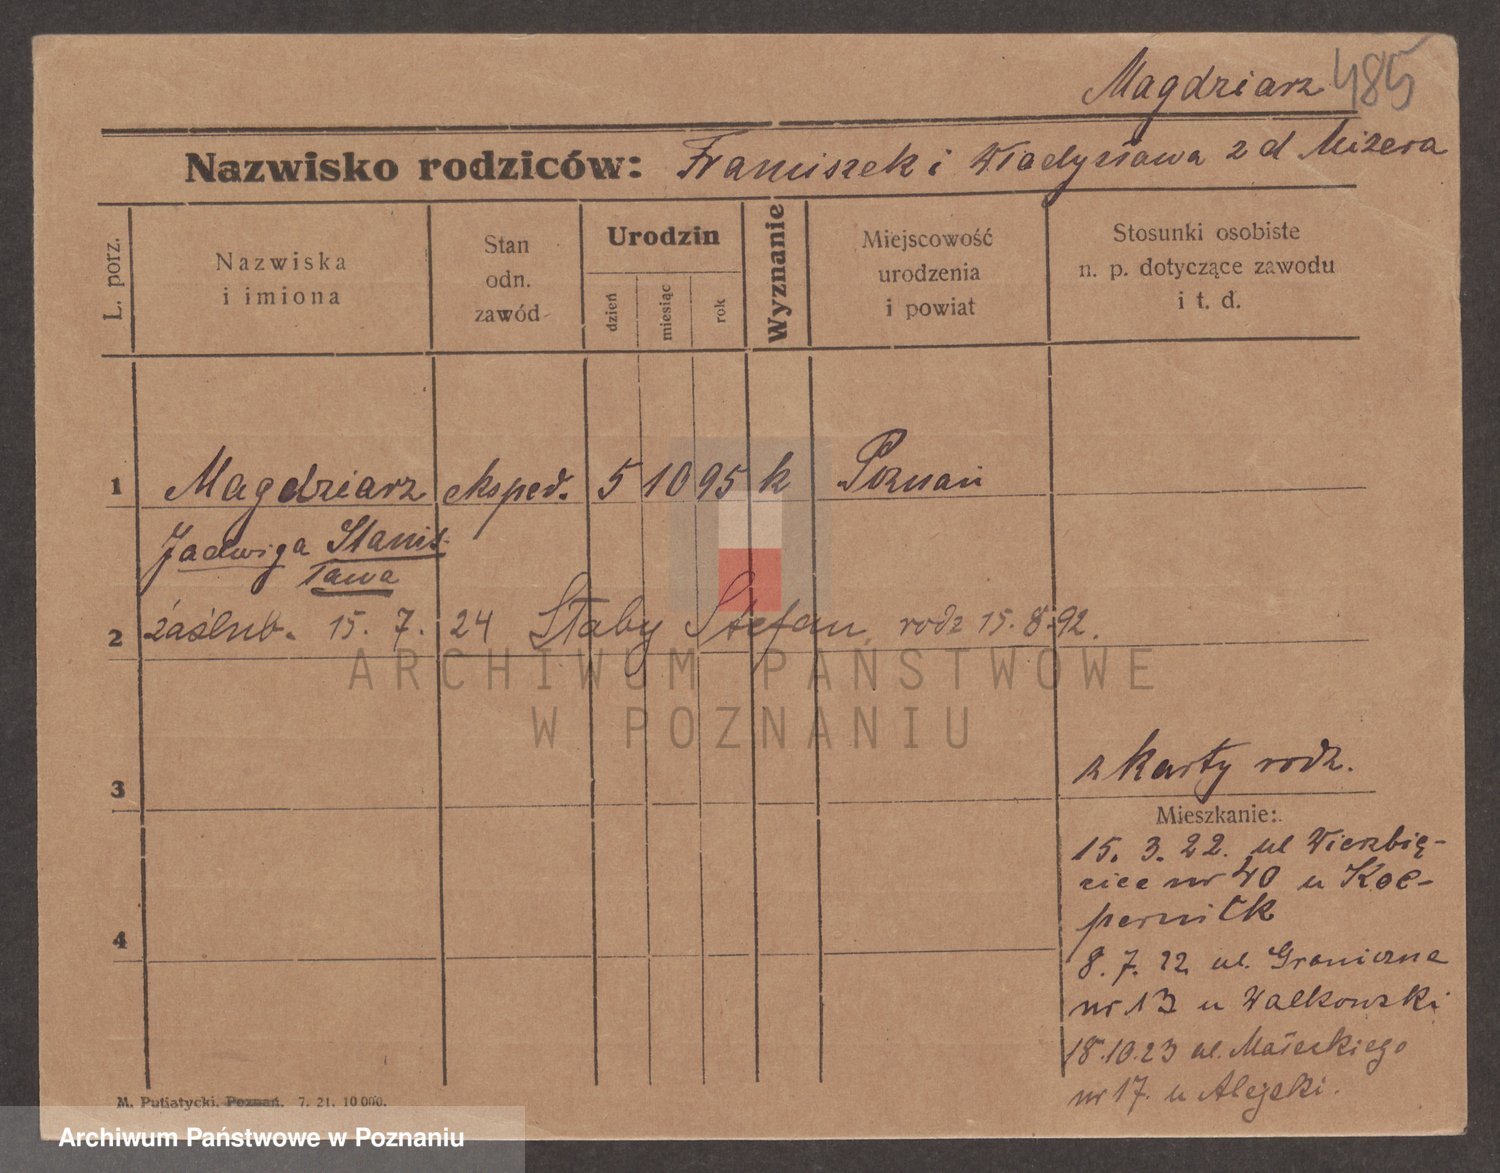 Magdziarz 485
Nazwisko rodziców: Franciszek i Władysława z d Mizera
L. porz.
Nazwiska
i imiona
Stan
odn.
zawód
Urodzin
dzień
miesiąc
rok
Wyznanie
Miejscowość
urodzenia
i powiat
Stosunki osobiste
n. p. dotyczące zawodu
i t. d.
1 Magdziarz eksped. 5 10 95 k Poznań
Jadwiga Stanis-
ława
2 zaślub. 15. 7. 24 Staby Stefan, rodz 15.8.92.
ARCHIWUM PAŃSTWOWE
W POZNANIU
z karty rodz.
3
Mieszkanie:
15. 3. 22. ul Wierzbię-
cice nr 40 u Koc-
pernik
4
8. 7. 22 ul. Graniczna
nr 13 u Walkowski
18.10.23 ul. Małeckiego
nr 17. u Alejski.
M. Putiatycki, Poznań. 7. 21. 10 000.
Archiwum Państwowe w Poznaniu